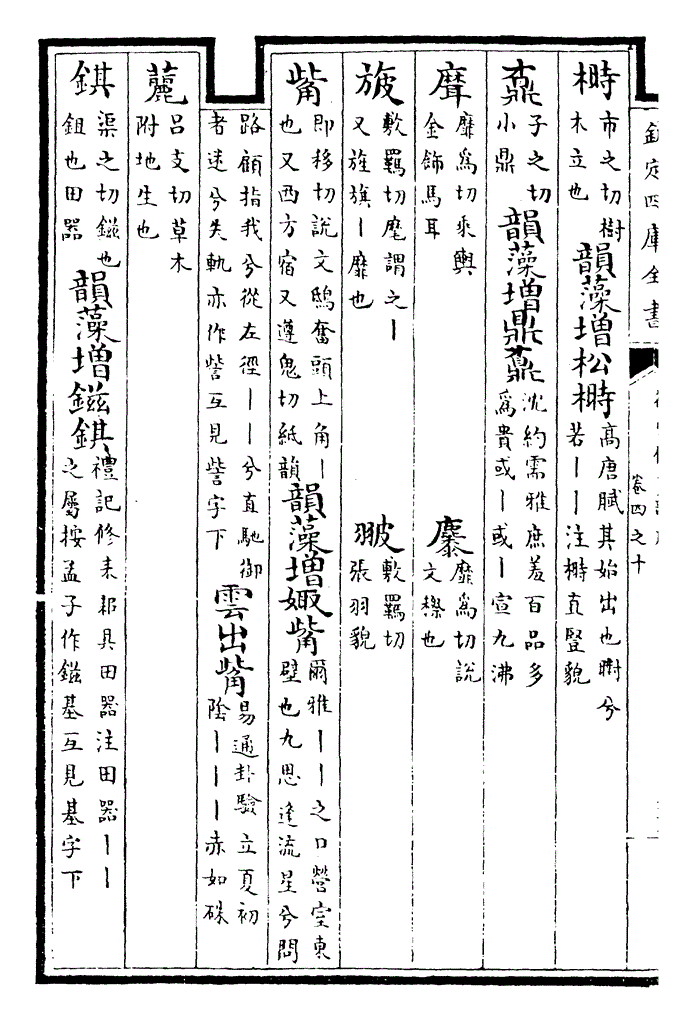 欽定四庫全書
卷四之十
榯 市之切樹木立也 韻藻增松榯 高唐賦其始出也㬣兮若丨丨注榯直豎貌
鼒 子之切小鼎 韻藻增鼎鼒 沈約需雅庶羞百品多爲貴或丨或丨宣九沸
𦗕 靡爲切乘輿金飾馬耳 𪎭 靡爲切說文穄也
旇 敷羈切麾謂之丨又旌旗丨靡也 翍 敷羈切張羽貌
觜 即移切說文鴟奮頭上角丨也又西方宿又遵鬼切紙韻 韻藻增娵觜 爾雅丨丨之口營室東壁也九思逢流星兮問
路顧指我兮從左徑丨丨兮直馳御者迷兮失軌亦作訾互見訾字下 雲出觜 易通卦驗立夏初陰丨丨丨赤如硃
䕻 呂支切草木附地生也
錤 渠之切鎡也鉏也田器 韻藻增鎡錤 禮記修耒耜具田器注田器丨丨之屬按孟子作鎡基互見基字下